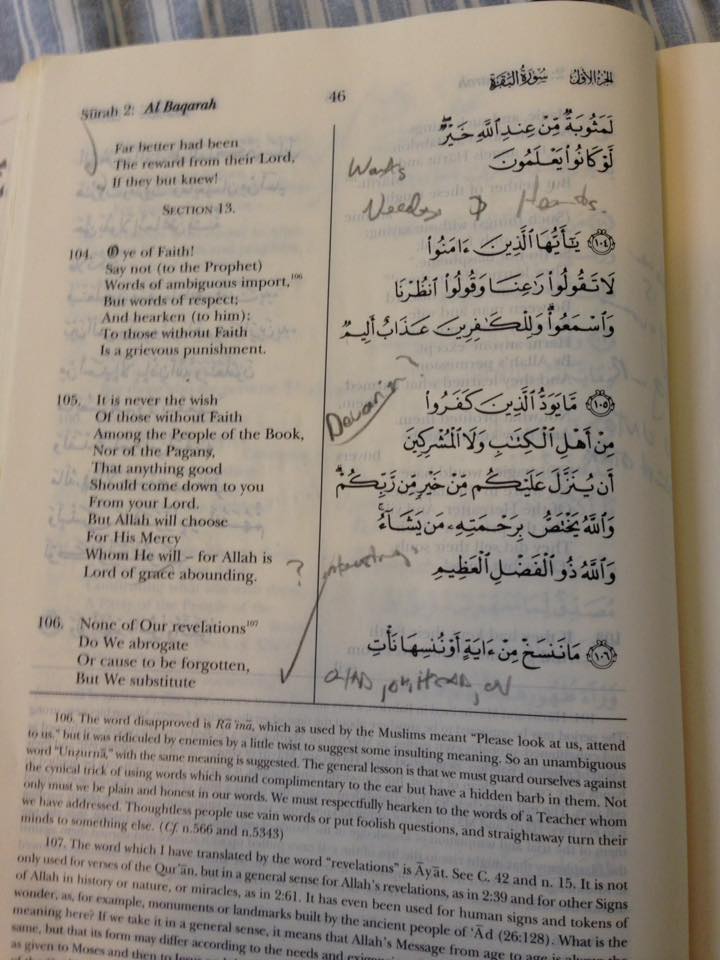 Sūrah 2: Al Baqarah
46
سُورَةُ البَقَرَةِ الجزء الأول
Far better had been
The reward from their Lord,
If they but knew!
SECTION 13.
104. O ye of Faith!
Say not (to the Prophet)
Words of ambiguous import,106
But words of respect;
And hearken (to him):
To those without Faith
Is a grievous punishment.
105. It is never the wish
Of those without Faith
Among the People of the Book,
Nor of the Pagans,
That anything good
Should come down to you
From your Lord.
But Allah will choose
For His Mercy
Whom He will – for Allah is
Lord of grace abounding.
106. None of Our revelations107
Do We abrogate
Or cause to be forgotten,
But We substitute
لَمَثُوبَةٌ مِّنْ عِندِ اللَّهِ خَيْرٌ
لَّوْ كَانُوا يَعْلَمُونَ
Wants
Needs
﴿١٠٤﴾ يَٰٓأَيُّهَا الَّذِينَ ءَامَنُوا
لَا تَقُولُوا رَٰعِنَا وَقُولُوا انظُرْنَا
وَاسْمَعُوا وَلِلْكَٰفِرِينَ عَذَابٌ أَلِيمٌ
﴿١٠٥﴾ مَّا يَوَدُّ الَّذِينَ كَفَرُوا
مِنْ أَهْلِ الْكِتَٰبِ وَلَا الْمُشْرِكِينَ
أَن يُنَزَّلَ عَلَيْكُم مِّنْ خَيْرٍ مِّن رَّبِّكُمْ
وَاللَّهُ يَخْتَصُّ بِرَحْمَتِهِ مَن يَشَاءُ
? interesting.
وَاللَّهُ ذُو الْفَضْلِ الْعَظِيمِ
﴿١٠٦﴾ مَا نَنسَخْ مِنْ ءَايَةٍ أَوْ نُنسِهَا نَأْتِ
106. The word disapproved is Rā'inā, which as used by the Muslims meant "Please look at us, attend
to us." but it was ridiculed by enemies by a little twist to suggest some insulting meaning. So an unambiguous
word "Unẓurnā," with the same meaning is suggested. The general lesson is that we must guard ourselves against
the cynical trick of using words which sound complimentary to the ear but have a hidden barb in them. Not
only must we be plain and honest in our words. We must respectfully hearken to the words of a Teacher whom
we have addressed. Thoughtless people use vain words or put foolish questions, and straightaway turn their
minds to something else. (Cf. n.566 and n.5343)
107. The word which I have translated by the word "revelations" is Āyāt. See C. 42 and n. 15. It is not
only used for verses of the Qur'ān, but in a general sense for Allah's revelations, as in 2:39 and for other Signs
of Allah in history or nature, or miracles, as in 2:61. It has even been used for human signs and tokens of
wonder, as, for example, monuments or landmarks built by the ancient people of 'Ād (26:128). What is the
meaning here? If we take it in a general sense, it means that Allah's Message from age to age is always the
same, but that its form may differ according to the needs and
as given to Moses and then to Jesus and